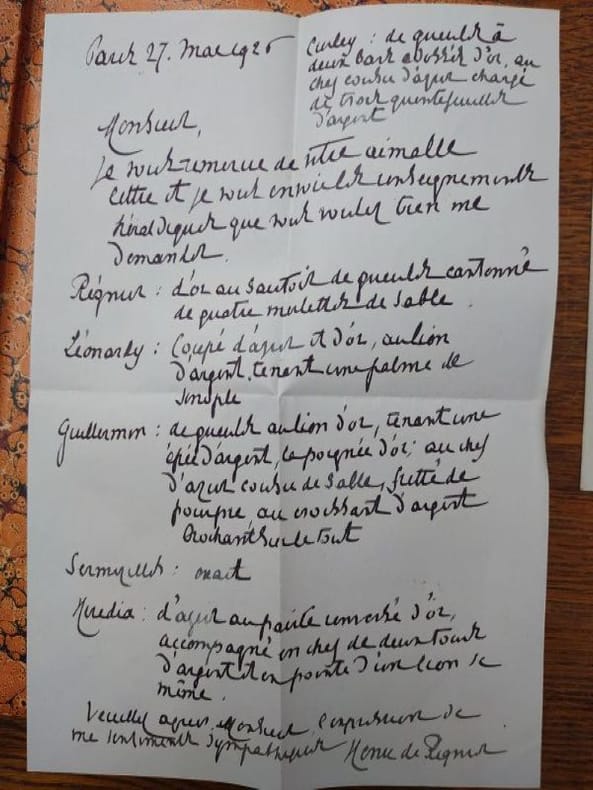 Paris 27. Mai 1926
Curley : de gueules à
deux bars adossés d'or, au
chef cousu d'azur chargé
de trois quintefeuilles
d'argent
Monsieur,
Je vous remercie de votre aimable
lettre et je vous envoie les renseignements
héraldiques que vous voulez bien me
demander.
Régnier : d'or au sautoir de gueules cantonné
de quatre merlettes de sable
Léonardy : Coupé d'azur et d'or, au lion
d'argent, tenant une palme de
sinople
Guillermin : de gueules au lion d'or, tenant une
épée d'argent, la poignée d'or; au chef
d'azur cousu de sable, fretté de
pourpre au croissant d'argent
brochant sur le tout
: exact
Heredia : d'azur au renversé d'or,
accompagné en chef de deux tours
d'argent et en pointe d'un lion
même.
Veuillez agréer, Monsieur, l'expression de
me sentiments sympathiques Henri de Régnier